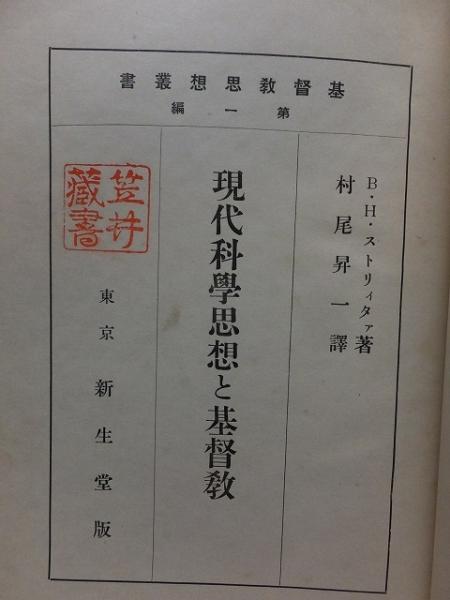 基督教思想叢書
第一編
B・H・ストリィタァ著
村尾昇一譯
現代科學思想と基督教
笠井藏書
東京 新生堂版